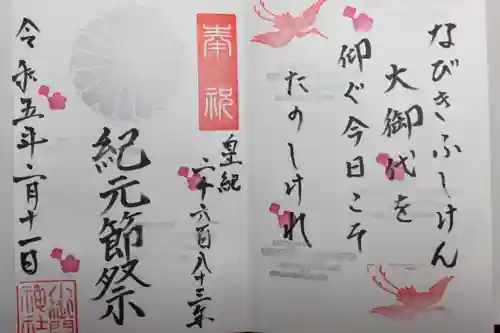 なびきふしけん
大御代を
仰ぐ今日こそ
たのしけれ
奉祝
皇紀
二千六百八十三年
紀元節祭
令和五年二月十一日
小御門
神社